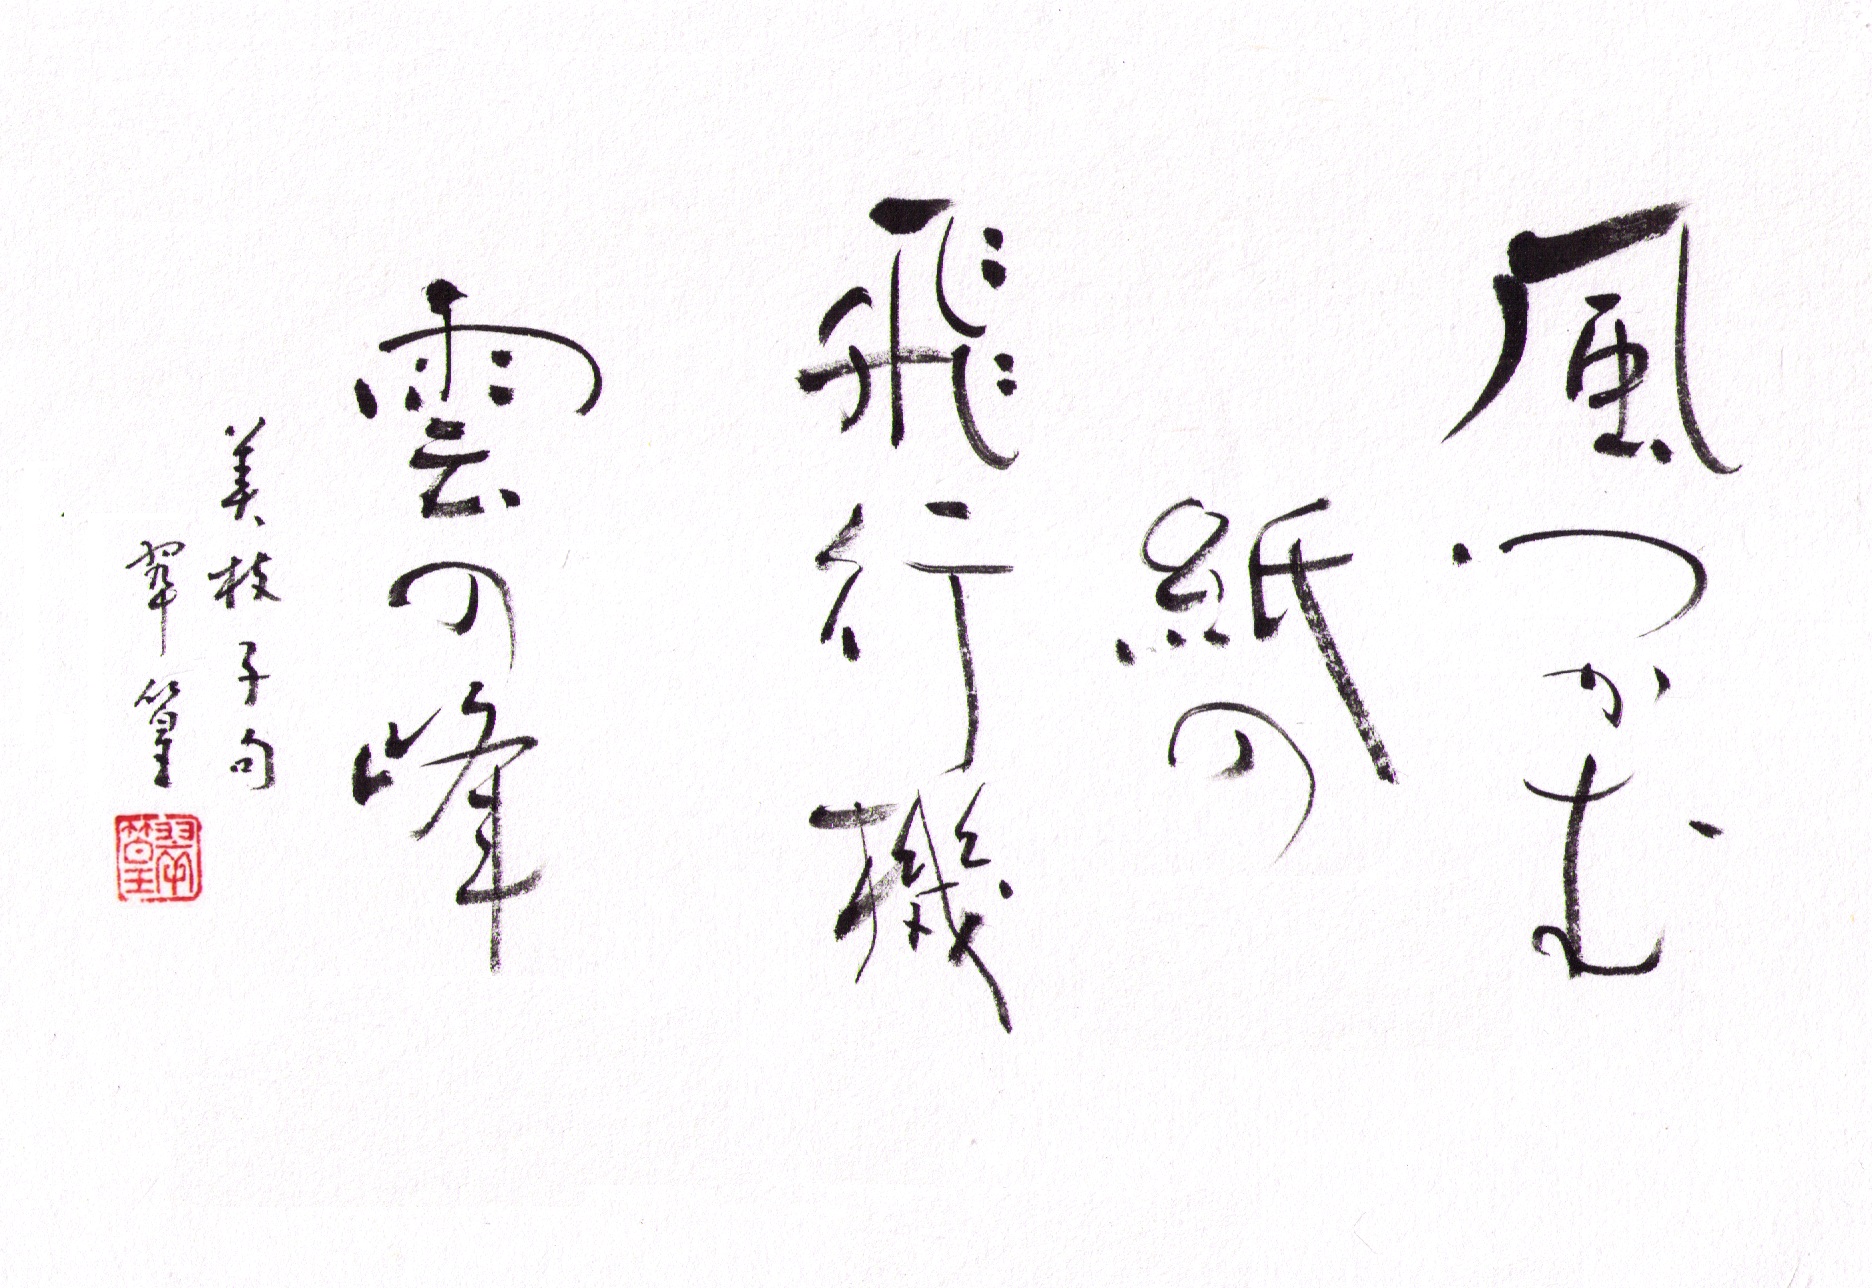 風つかむ
紙の
飛行機
雲の峰
美枝子句
翠篁
翠篁